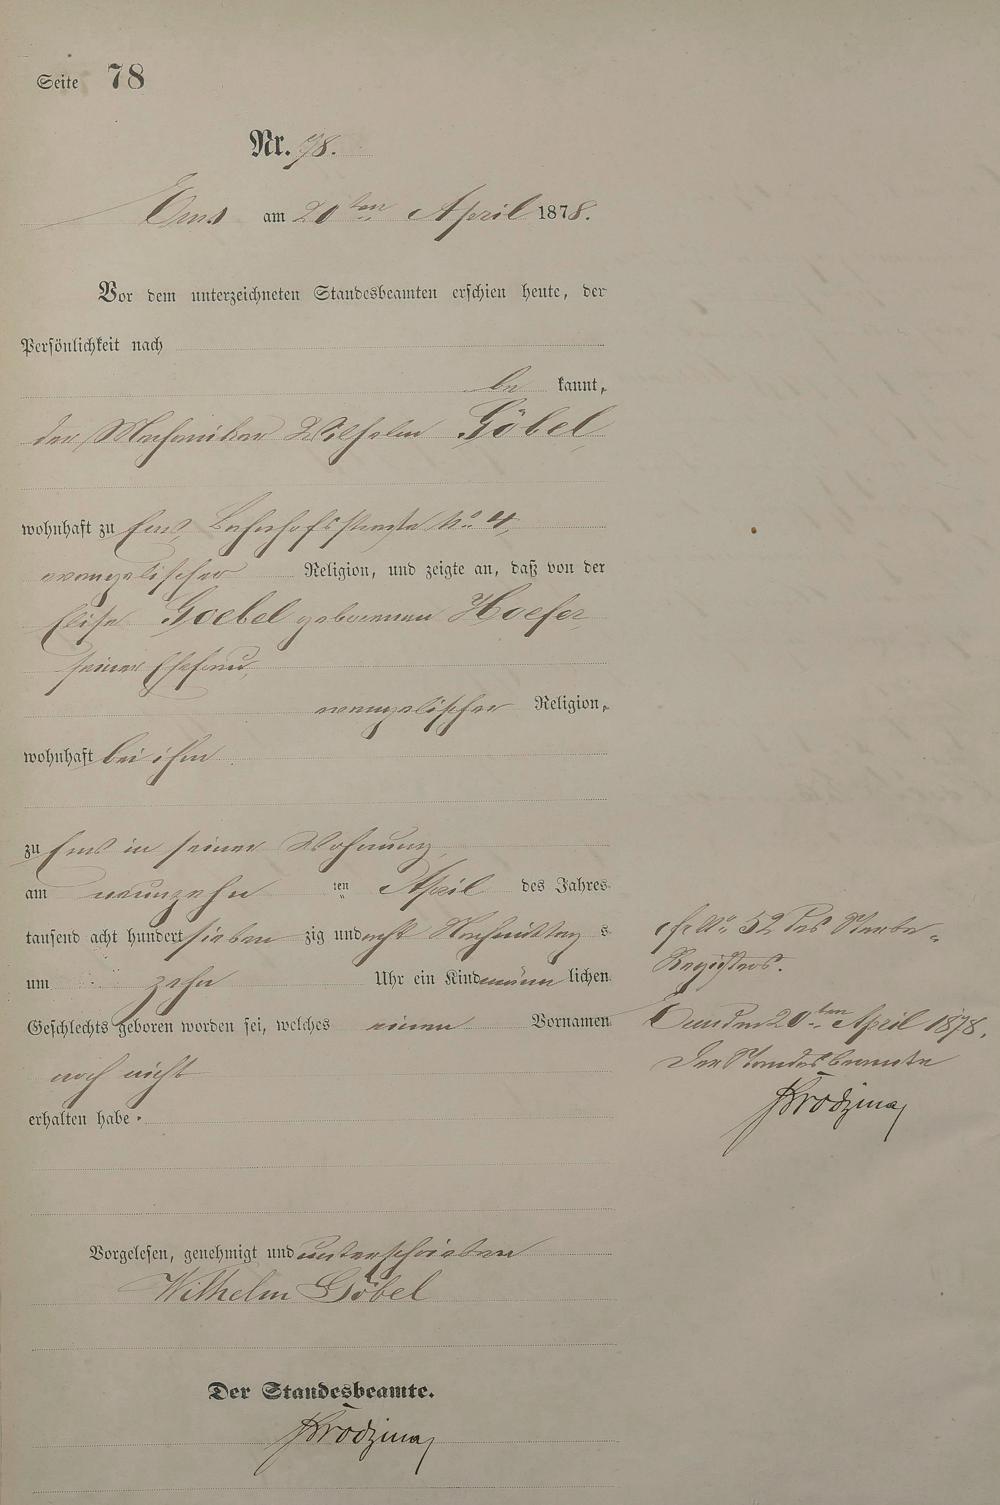 Seite 78
Nr. 78.
Ems am 20ten April 1878.
Vor dem unterzeichneten Standesbeamten erschien heute, der
Persönlichkeit nach
be kannt,
der Mechaniker Wilhelm Göbel,
wohnhaft zu Ems, Bahnhofsstraße No 4,
evangelischer Religion, und zeigte an, daß von der
Elise Goebel geborenen Hoefer,
seiner Ehefrau,
evangelischer Religion,
wohnhaft bei ihm
zu Ems in seiner Wohnung
am neunzehn ten April des Jahres
tausend acht hundert sieben zig und acht Nachmittag s
um zehn Uhr ein Kind männ lichen
Geschlechts geboren worden sei, welches einen Vornamen
noch nicht
erhalten habe.
Vorgelesen, genehmigt und unterschrieben
Wilhelm Göbel
Der Standesbeamte.
cfr. No 52 des Sterbe-
Registers.
Ems den 20ten April 1878.
Der Standesbeamte